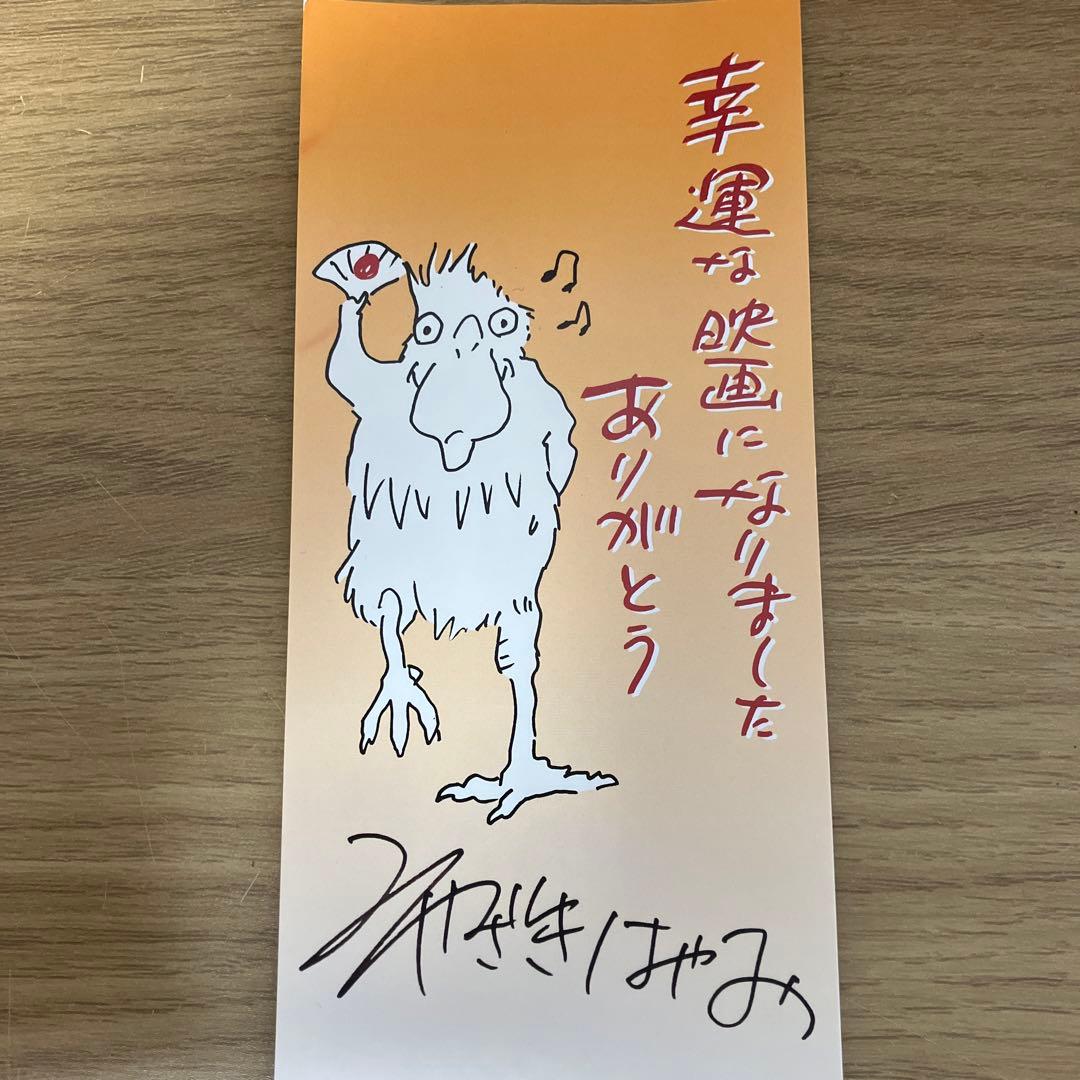 幸運な映画になりました
ありがとう
みやざきはやお